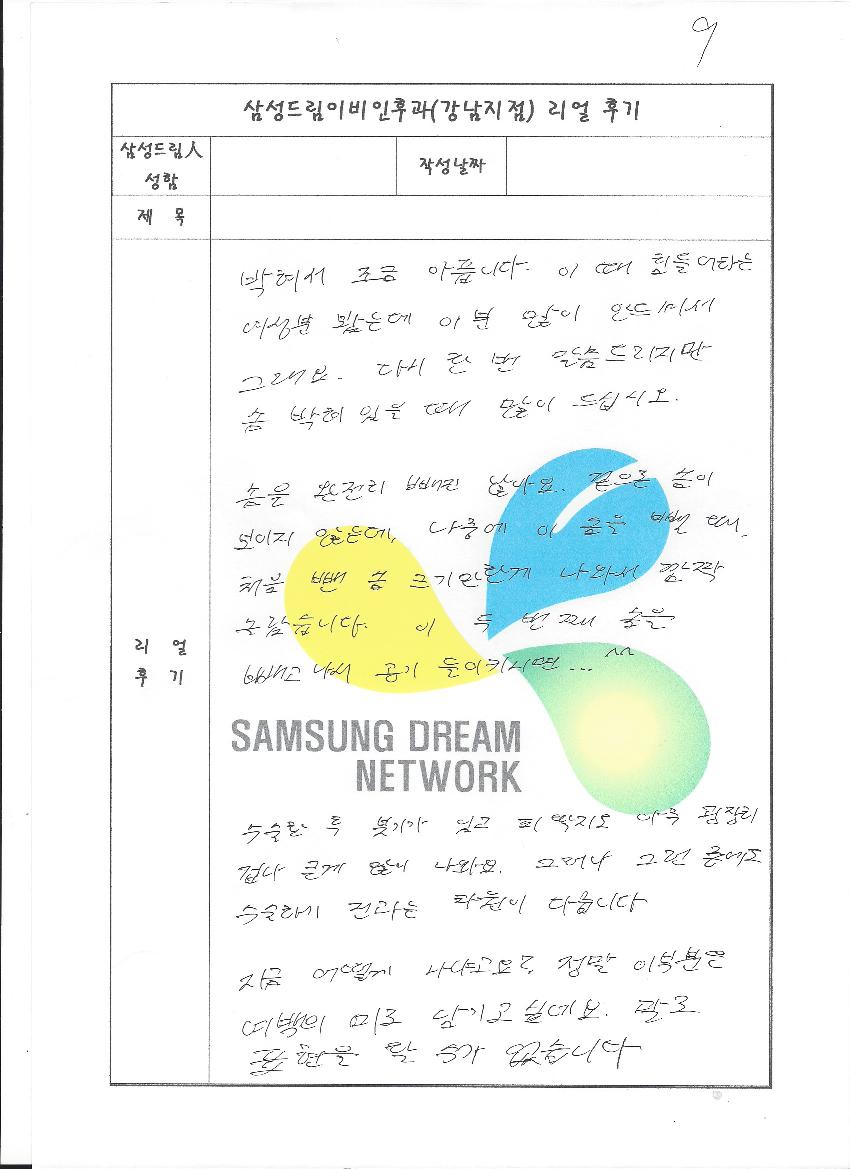 9
삼성드림이비인후과(강남지점) 리얼 후기
삼성드림人
성함
작성날짜
제 목
박혀서 조금 아픕니다. 이 때 힘들어하는
여성분 많은데 이분 많이 안드셔서
그래요. 다시 한 번 말씀드리지만
솜 박혀 있을 때 많이 드십시오.
솜을 완전히 빼낸 날이요. 겉으론 솜이
보이지 않는데, 나중에 이 솜을 뺄 때,
처음 뺀 솜 크기만한게 나와서 깜짝
놀랐습니다. 이 두 번째 솜을
빼고 나서 공기 들이키시면... ^^
리 얼
후 기
SAMSUNG DREAM
NETWORK
수술한 후 붓기가 있고 피 딱지도 아주 굉장히
겁나 큰게 많이 나와요. 그러나 그런 중에도
수술하기 전과는 차원이 다릅니다
지금 어떻게 사냐고요? 정말 이부분은
여백의 미로 남기고 싶네요. 말로
표현을 할 수가 없습니다